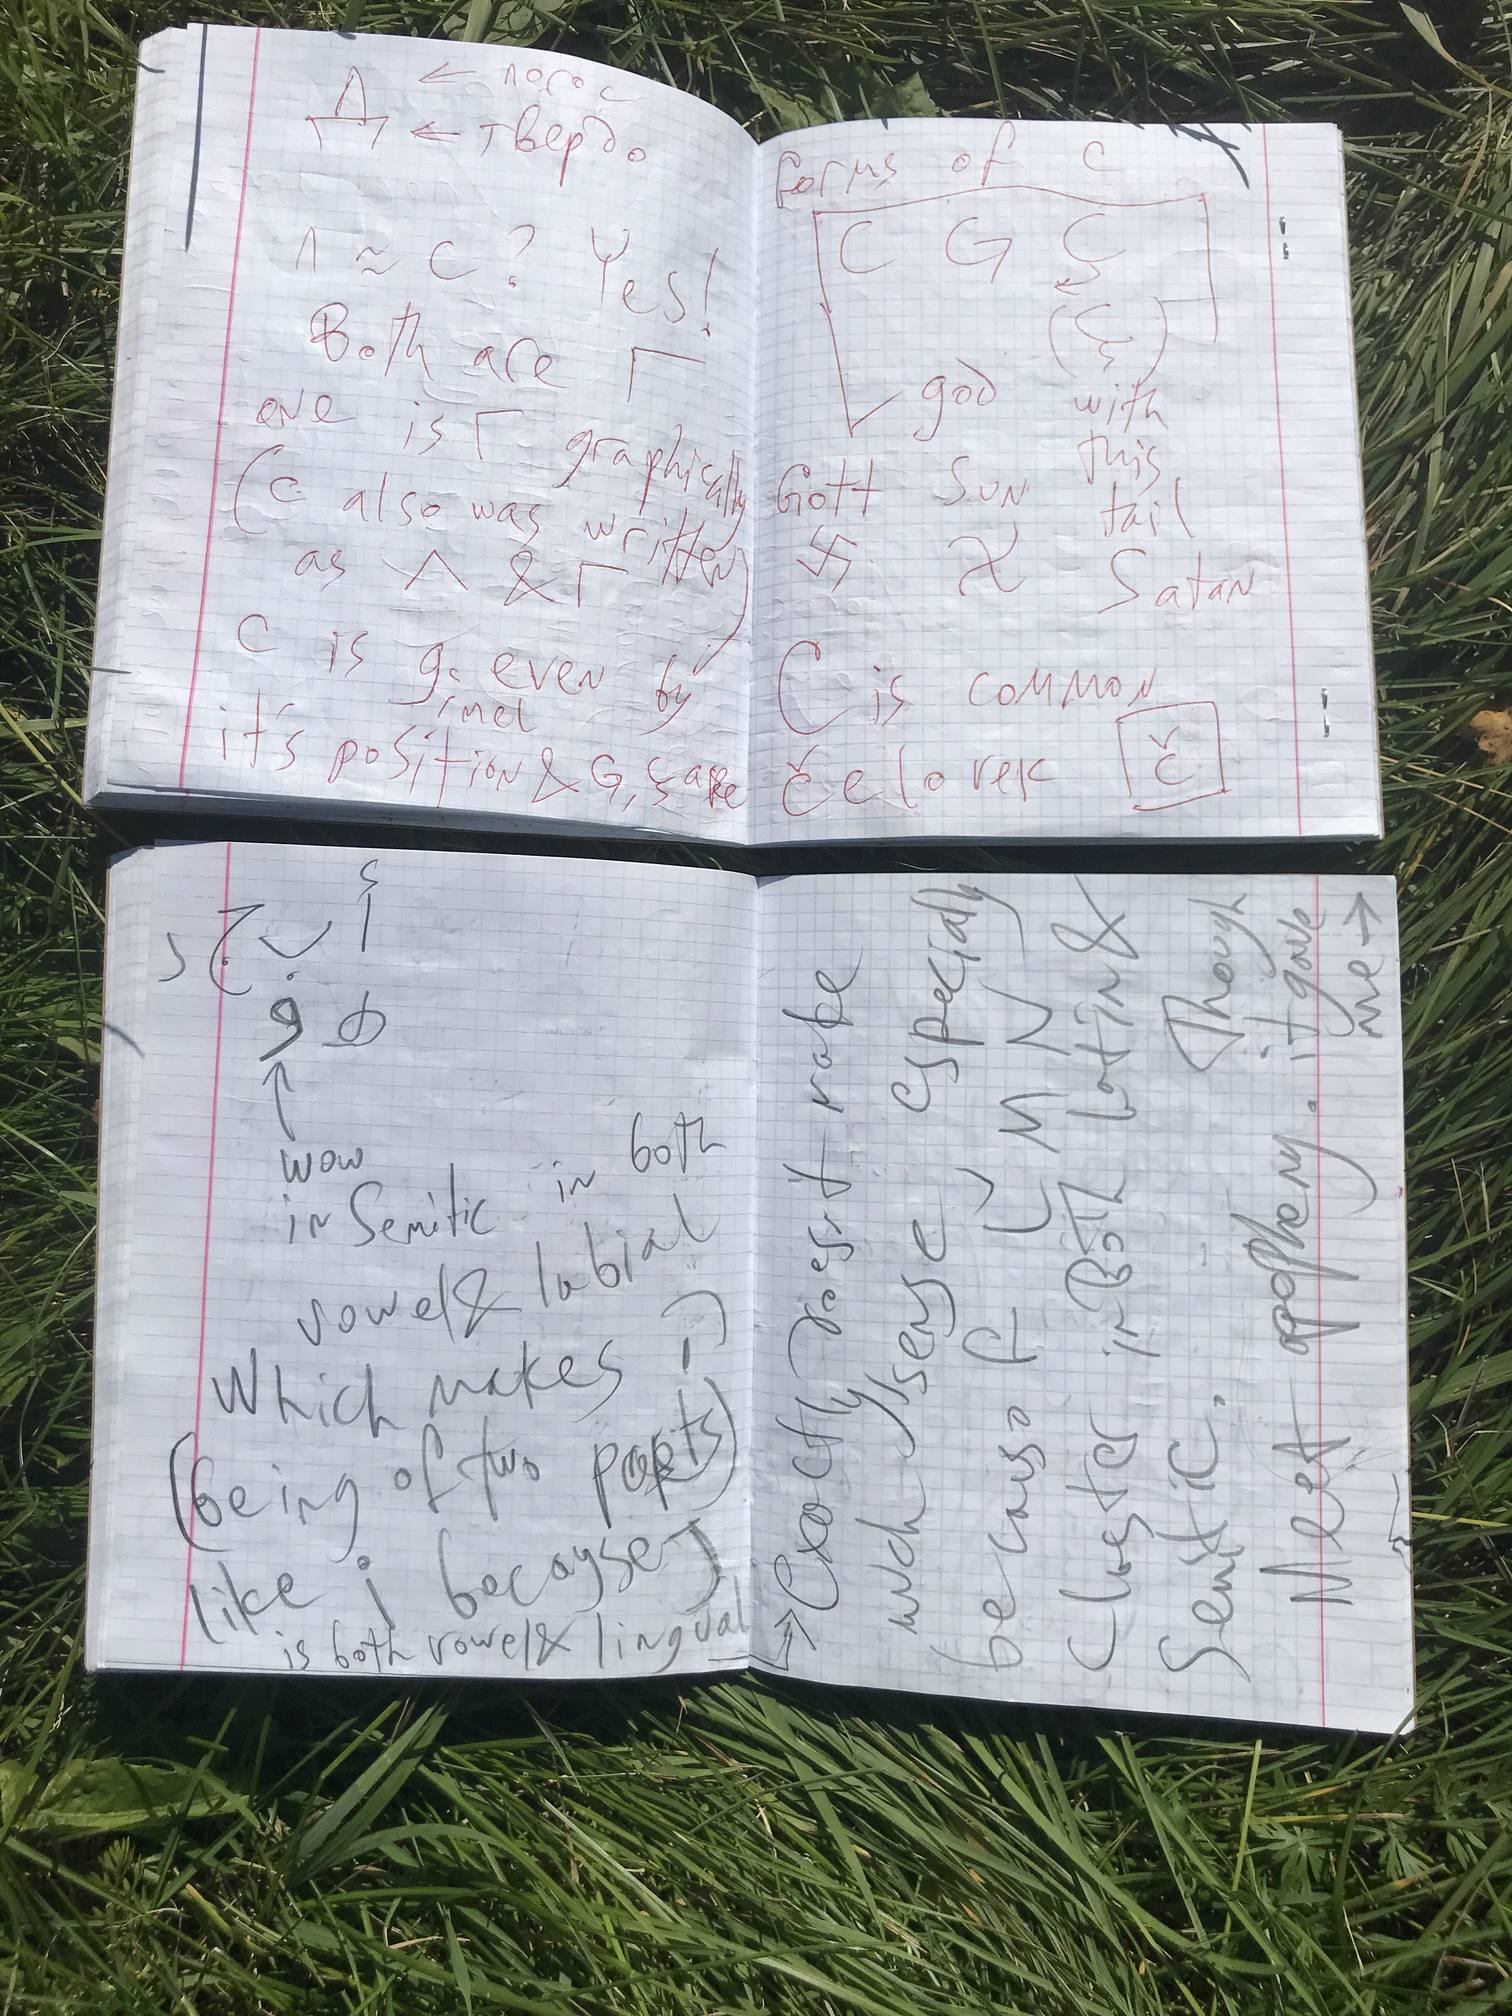 Д ← логос
← твердо
Λ ≈ C? Yes!
Both are Γ
one is Γ graphically
(C also was written
as Λ & Γ)
C is g. even by
imel
it's position & G, Ç are
forms of C
C G Ç
god with
this
Gott Sun tail
卐 Satan
C is common
čelovek č
wow
in Semitic in both
vowel & labial
which makes i
(being of two parts)
like j because j
is both vowel & lingual
→ Exactly doesn't make
much sense especially
because
L M N
cluster in Both Latin &
Semitic. Though
Next it gave
me →